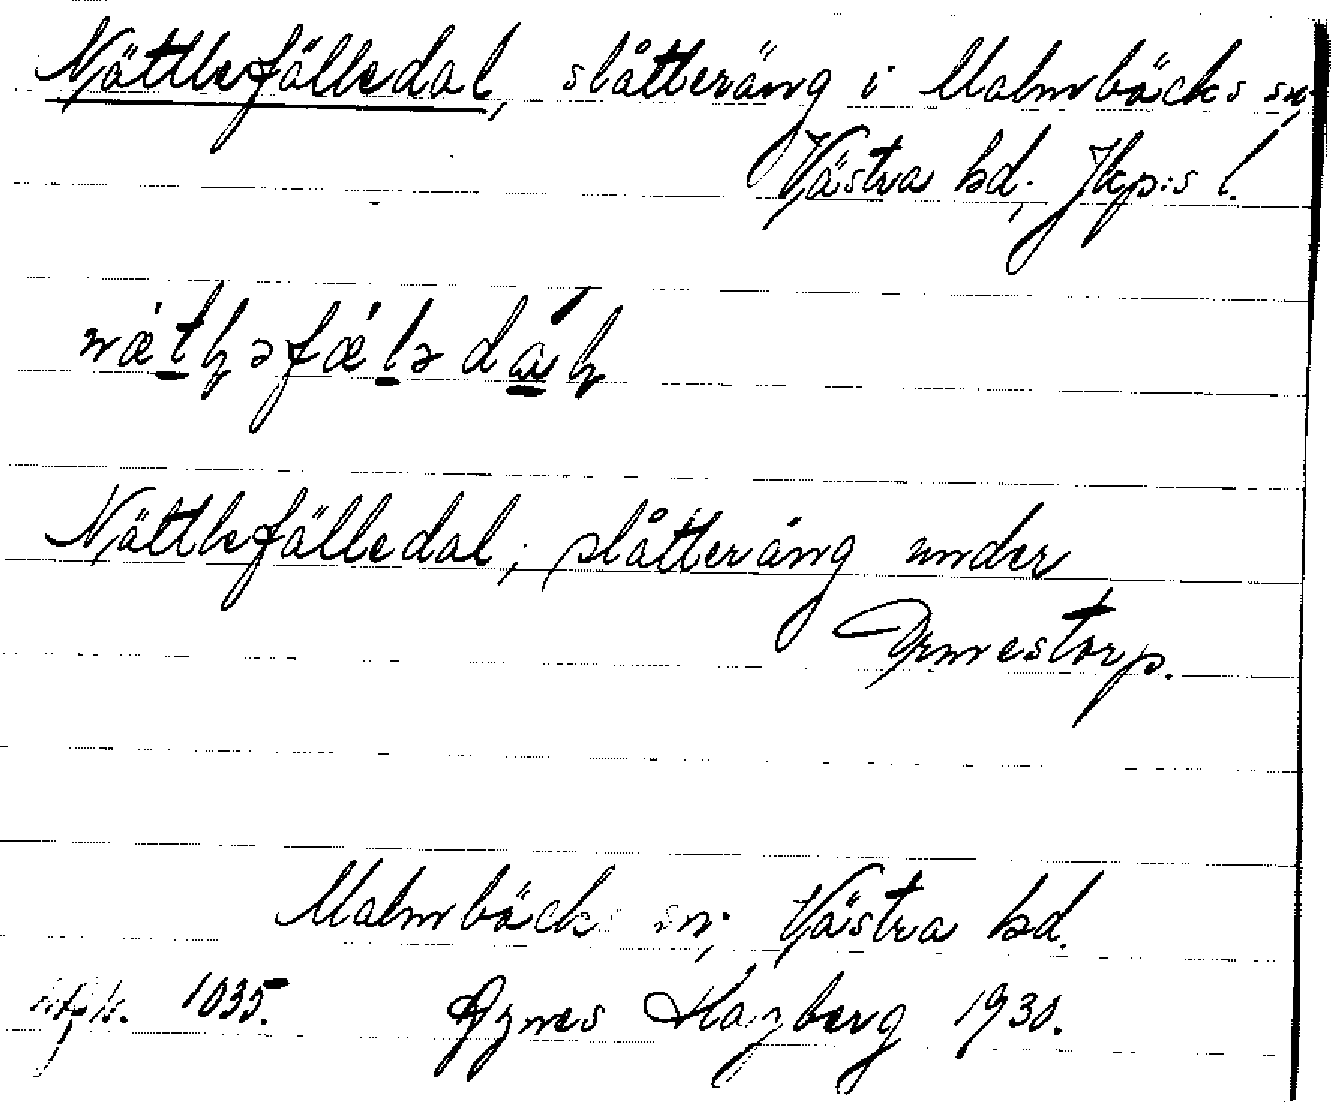 Nättlefälledal, slåtteräng i Malmbäcks sn,
Västra hd, Jkp:s l.
Nättlefälledal, slåtteräng under
Malmbäcks sn, Västra hd.
1035. Agnes 1930.